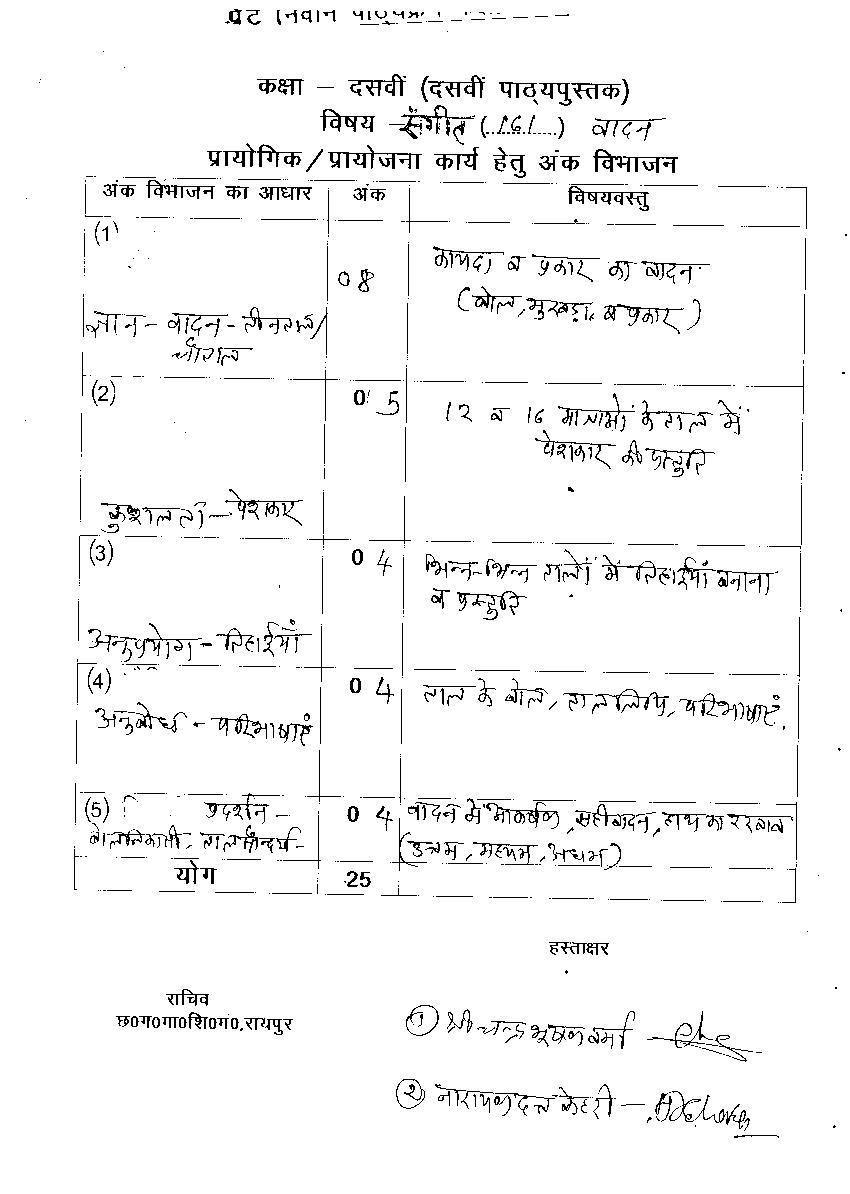 कक्षा – दसवीं (दसवीं पाठ्यपुस्तक)
विषय – संगीत (...161...) वादन
प्रायोगिक/प्रायोजना कार्य हेतु अंक विभाजन
अंक विभाजन का आधार अंक विषयवस्तु
(1)
08
कायदा व प्रकार का वादन
(बोल, मुखड़ा, व प्रकार)
ज्ञान – वादन – तीनताल/
चौताल
(2) 05
12 व 16 मात्राओं के ताल में
पेशकार की प्रस्तुति
कुशलता – पेशकार
(3) 04
भिन्न-भिन्न तालों में तिहाईयाँ बनाना
व प्रस्तुति
अनुप्रयोग – तिहाईयाँ
(4) 04 ताल के बोल, ताललिपि, परिभाषाएं.
अवबोध – परिभाषाएं
(5) प्रदर्शन – 04 वादन में आकर्षक, सही वादन, हाथ का रखाव
(उत्तम, मध्यम, अधम)
योग 25
हस्ताक्षर
राचिव
छ0ग0गा0शि0ग0, रायपुर
(1) श्री चन्द्रभूषण वर्मा –
(2) नारायण दत्त –